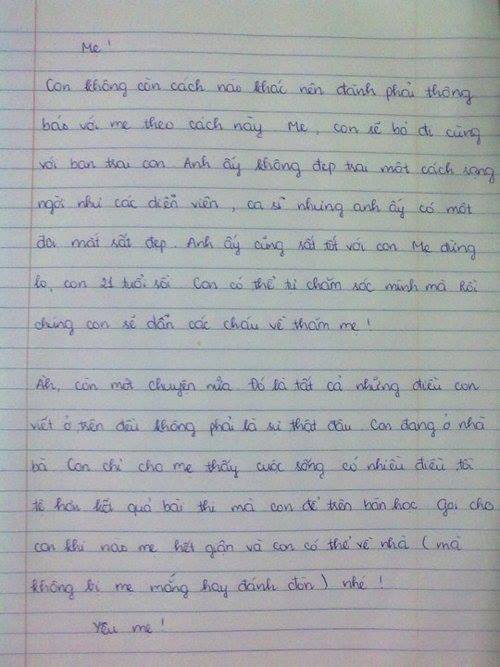 Mẹ!
Con không còn cách nào khác nên đành phải thông
báo với mẹ theo cách này. Mẹ, con sẽ bỏ đi cùng
với bạn trai con. Anh ấy không đẹp trai một cách sạng
ngời như các diễn viên, ca sĩ nhưng anh ấy có một
đôi mắt sất đẹp. Anh ấy cũng sất tốt với con. Mẹ đừng
lo, con 21 tuổi sồi. Con có thể tự chăm sóc mình mà. Rồi
chúng con sẽ dẫn các cháu về thăm mẹ!
Àh, còn một chuyện nữa. Đó là tất cả những điều con
viết ở trên đều không phải là sự thật đâu. Con đang ở nhà
bà. Con chỉ cho mẹ thấy cuộc sống có nhiều điều tồi
tệ hơn kết quả bài thi mà con để trên bàn học. Gọi cho
con khi nào mẹ hết giận và con có thể về nhà (mà
không bị mẹ mắng hay đánh đòn) nhé!
Yêu mẹ!